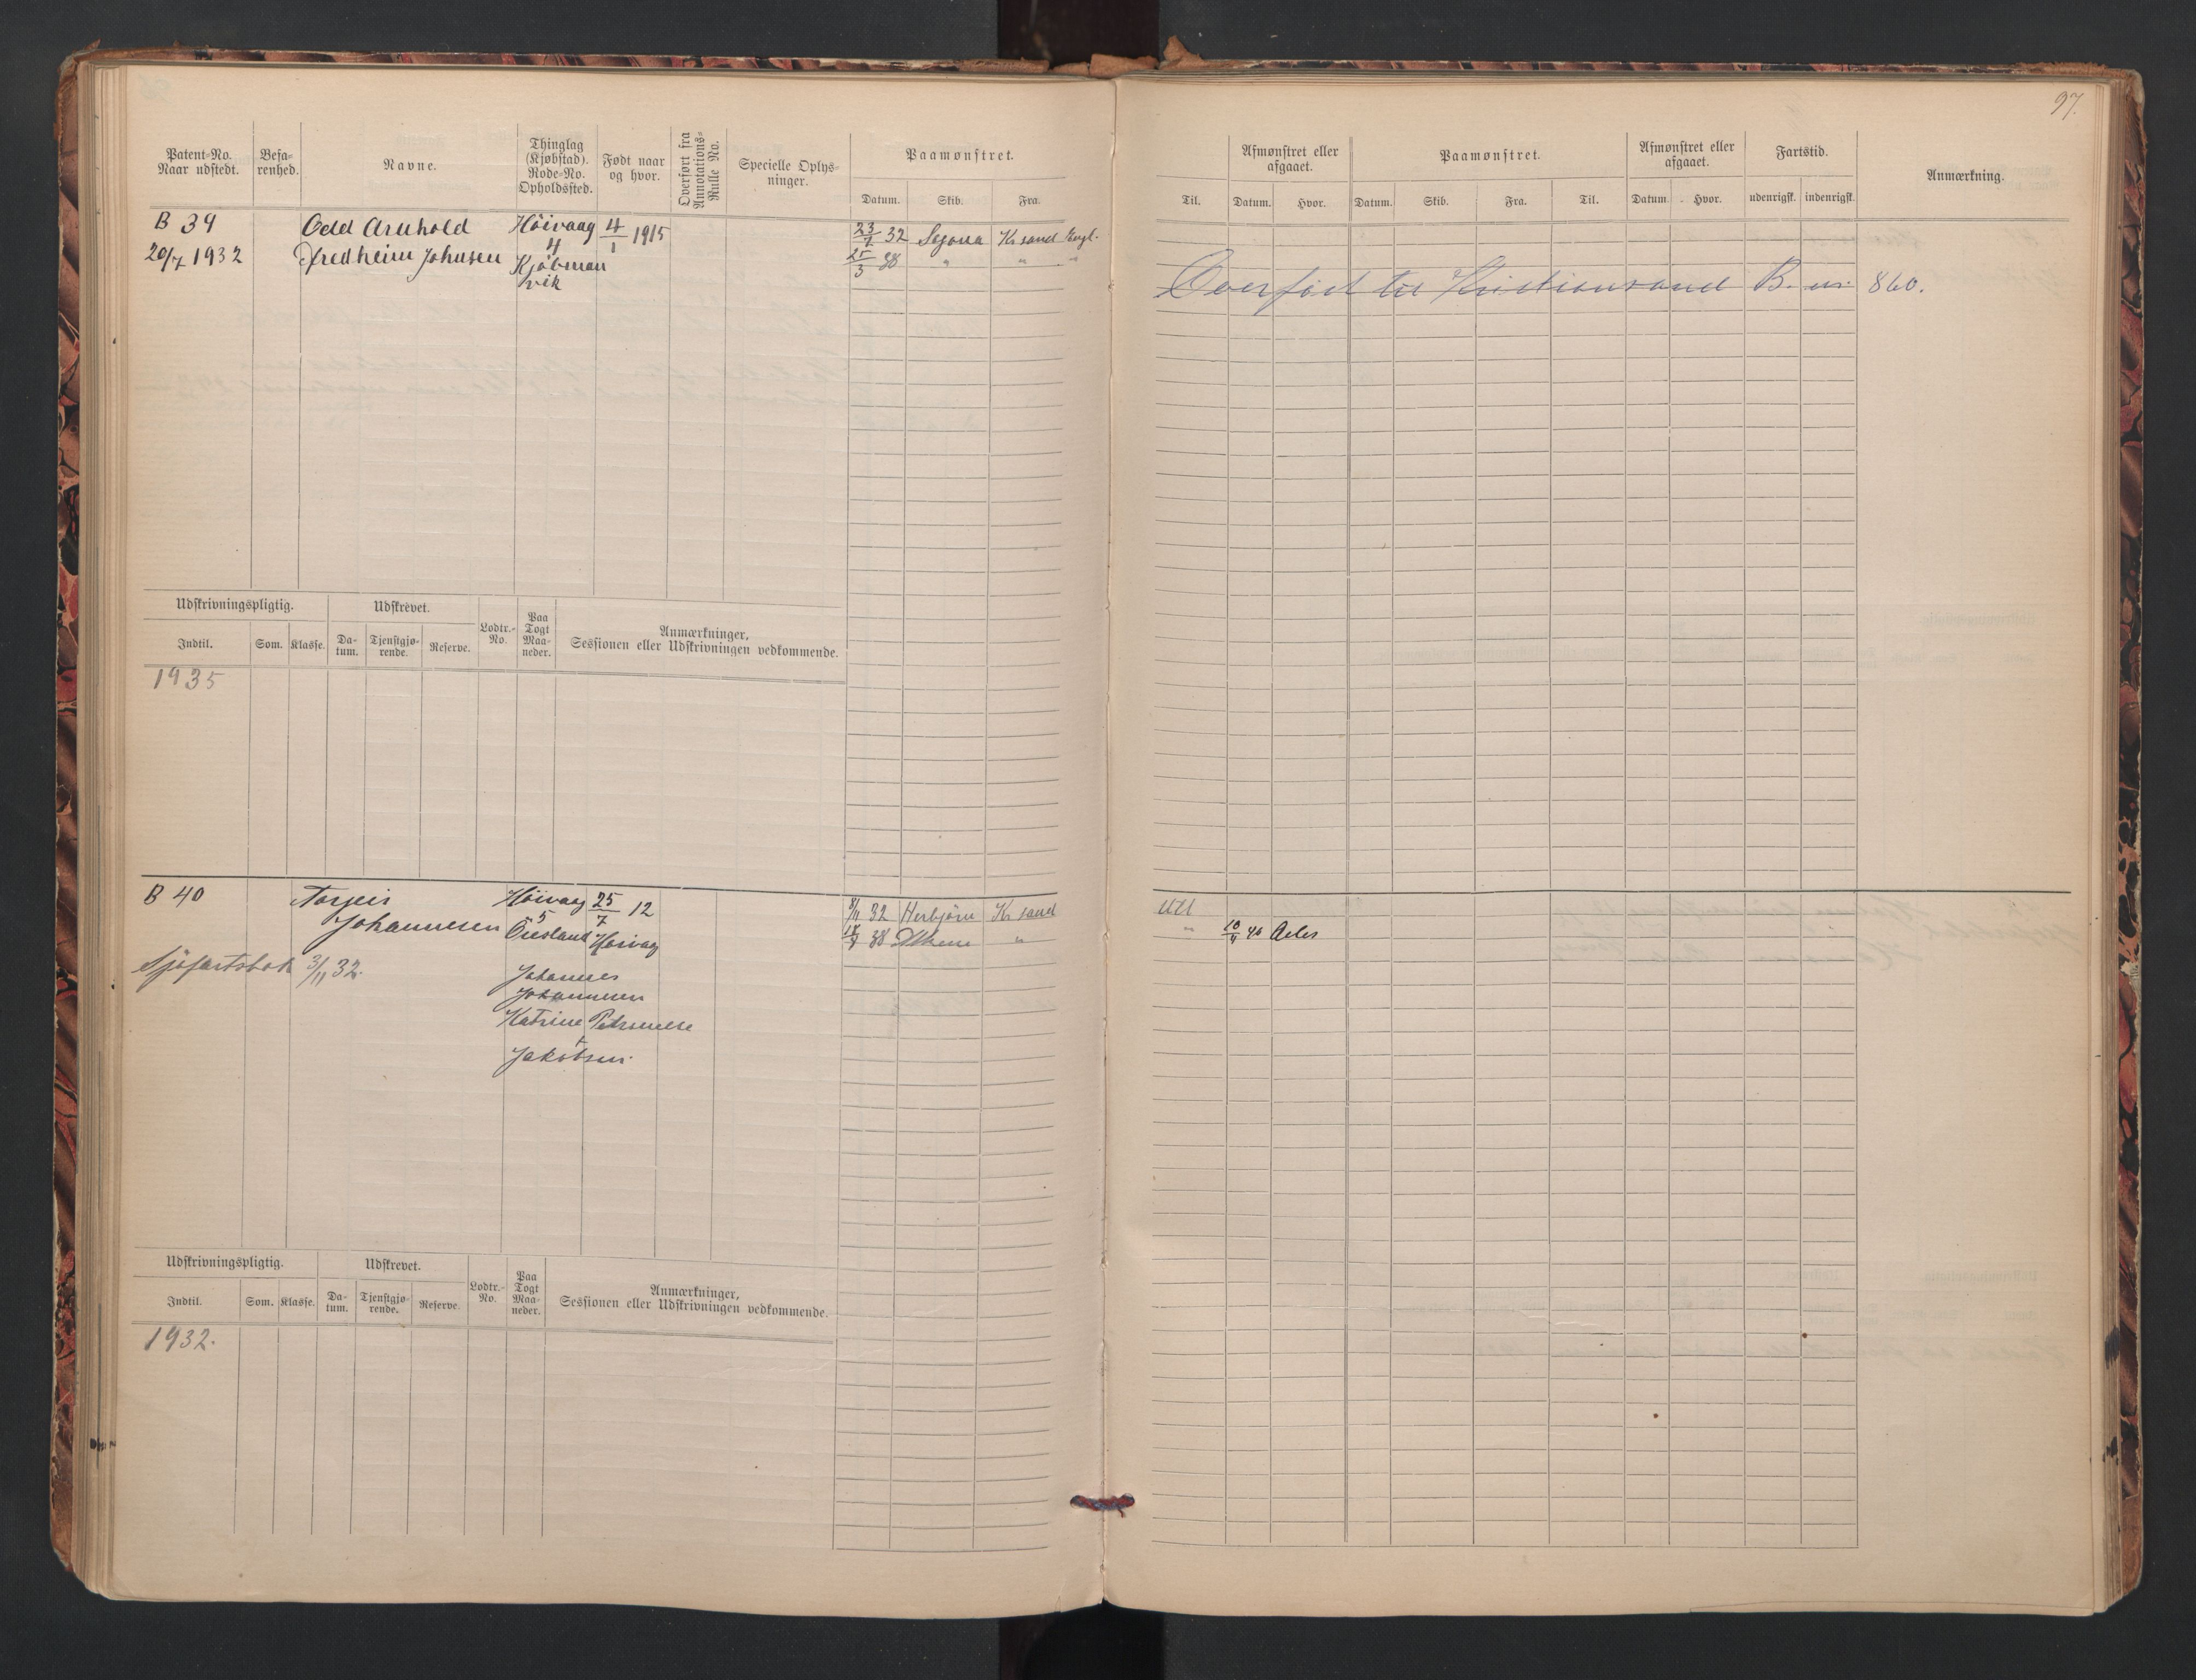 97.
Patent-No.
Naar udstedt.
Befa-
renhed.
Navne.
Thinglag
(Kjøbstad).
Rode-No.
Opholdssted.
Født naar
og hvor.
Overført fra
Annotations-
Rulle No.
Specielle Oplys-
ninger.
Paamønstret.
Datum. Skib. Fra.
Til.
Afmønstret eller
afgaaet.
Datum. Hvor.
Paamønstret.
Datum. Skib. Fra. Til.
Afmønstret eller
afgaaet.
Datum. Hvor.
Fartstid.
udenrigsk. indenrigsk.
Anmærkning.
B 39
20/7 1932
Odd Arnhold
Fredheim Johnsen
Höivaag
4
Kjöbman
vik
4/1 1915
23/7 32 Segona Kr sand Engl.
25/3 38 " " "
Overført til Kristiansand B. nr. 860.
Udskrivningspligtig.
Indtil. Som. Klasse.
Udskrevet.
Da-
tum.
Tjenstgjø-
rende.
Reserve.
Lodtr.-
No.
Paa
Togt
Maa-
neder.
Anmærkninger,
Sessionen eller Udskrivningen vedkommende.
1935
B 40
Torgeir
Johannesen
Sjöfartsbok 3/11 32.
Höivaag
5
Öresland
25/7 12
Höivaag
Johannes
Johannesen
Katrine
Jakobsen.
8/11 32 Herbjörn Kr sand Utl
38 " "
10/4 40
Udskrivningspligtig.
Indtil. Som. Klasse.
Udskrevet.
Da-
tum.
Tjenstgjø-
rende.
Reserve.
Lodtr.-
No.
Paa
Togt
Maa-
neder.
Anmærkninger,
Sessionen eller Udskrivningen vedkommende.
1932.